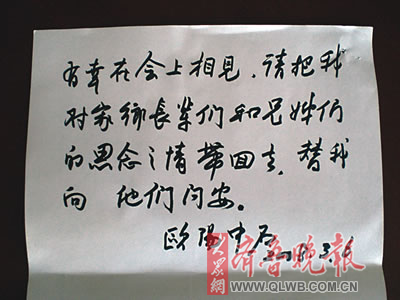 有幸在会上相見，请把我
对家鄉長辈们和兄姊们
的思念之情带回去，替我
向 他们问安。
欧阳中石
大眾網 齐鲁晚报
WWW.QLWB.COM.CN